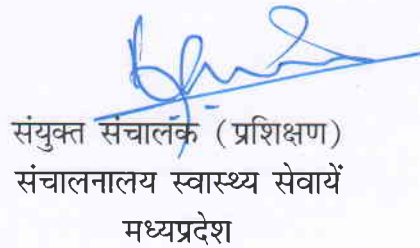 संयुक्त संचालक (प्रशिक्षण)
संचालनालय स्वास्थ्य सेवायें
मध्यप्रदेश